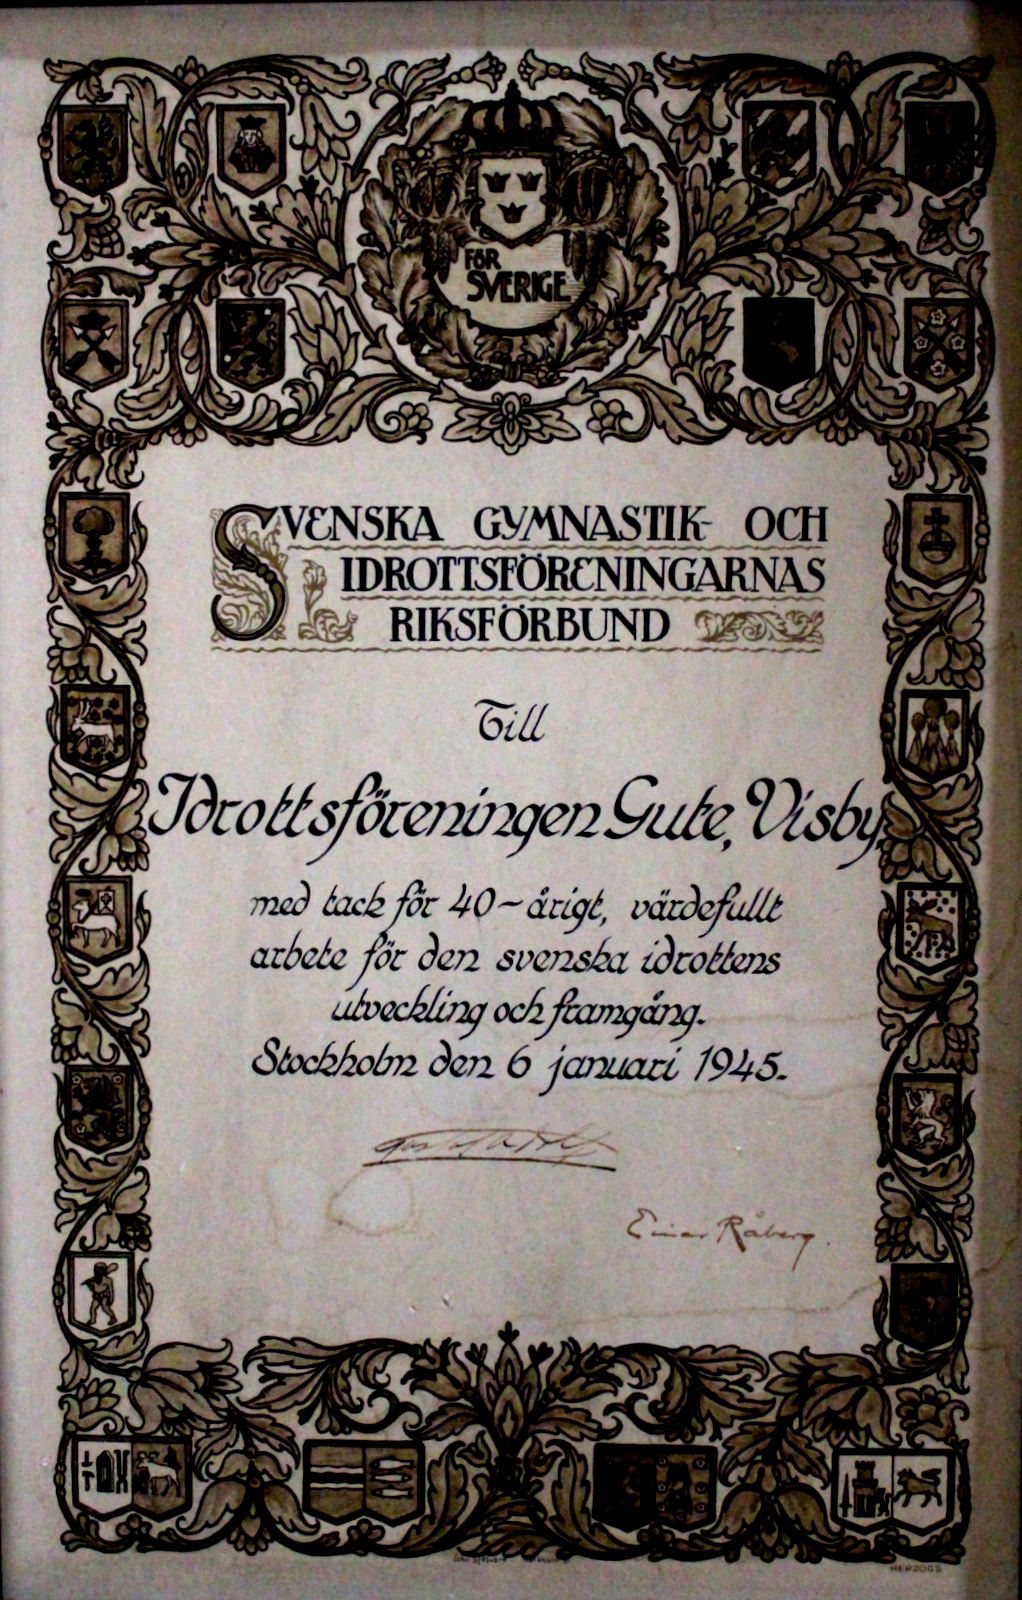 FÖR
SVERIGE
SVENSKA GYMNASTIK- OCH
IDROTTSFÖRENINGARNAS
RIKSFÖRBUND
Till
Idrottsföreningen Gute, Visby,
med tack för 40-årigt, värdefullt
arbete för den svenska idrottens
utveckling och framgång.
Stockholm den 6 januari 1945.
Einar Råberg
HERZOGS